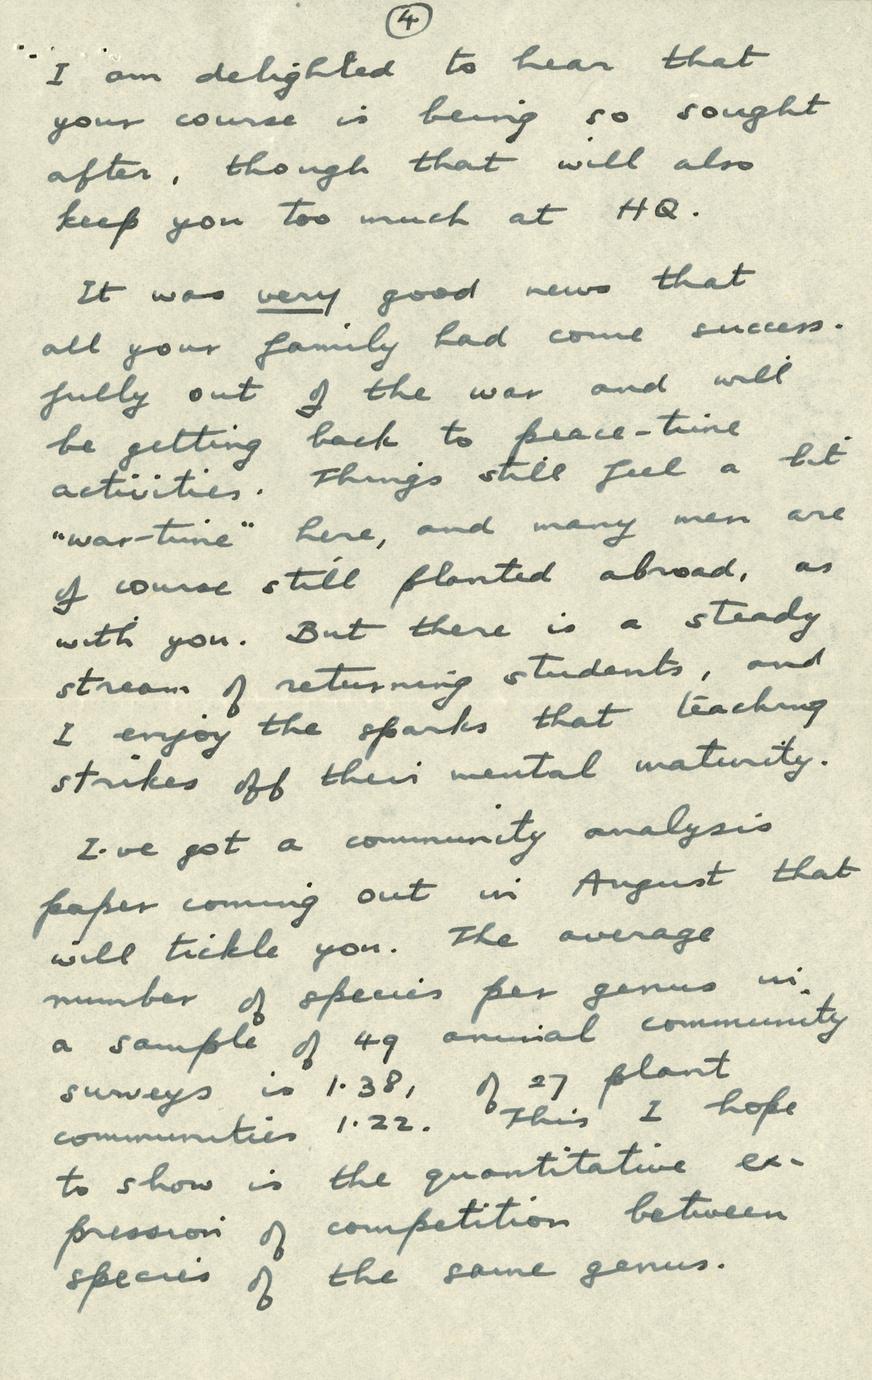 4
I am delighted to hear that
your course is being so sought
after, though that will also
keep you too much at HQ.
It was very good news that
all your family had come success-
fully out of the war and will
be getting back to peace-time
activities. Things still feel a bit
"war-time" here, and many men are
of course still planted abroad, as
with you. But there is a steady
stream of returning students, and
I enjoy the sparks that teaching
strikes off their mental maturity.
I've got a community analysis
paper coming out in August that
will tickle you. The average
number of species per genus in
a sample of 49 animal community
surveys is 1.38, of 27 plant
communities 1.22. This I hope
to show is the quantitative ex-
pression of competition between
species of the same genus.